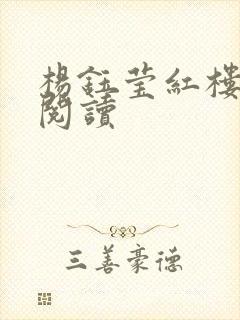 楊鈺瑩紅樓
閱讀
三善豪德